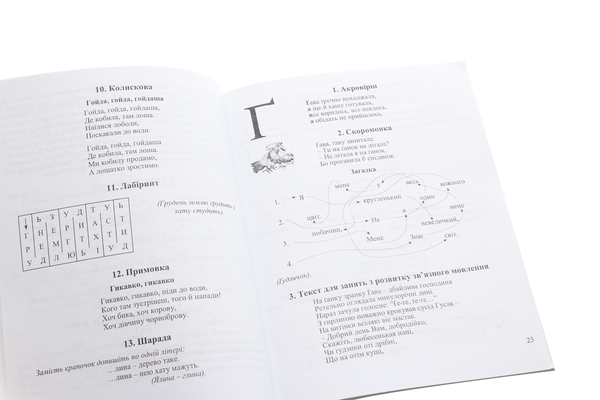 10. Колискова
Гойда, гойда, гойдаша
Гойда, гойда, гойдаша,
Де кобила, там лоша.
Наїлися лободи,
Поскакали до води.
Гойда, гойда, гойдаша
Де кобила, там лоша,
Ми кобилу продамо,
А лошатко зростимо.
11. Лабіринт
(Грудень землю грудить,
хату студить).
Ь З У Д Т У Ь
Г Н Е Р И А С Т
Р Е М Г Т Х Т И
У Д Л Ю Ь І У Д
12. Примовка
Гикавко, гикавко
Гикавко, гикавко, піди до води,
Кого там зустрінеш, того й напади!
Хоч бика, хоч корову,
Хоч дівчину чорноброву.
13. Шарада
Замість крапочок допишіть по одній літері:
…лина – дерево таке.
…лина – нею хату мажуть.
(Ялина – глина).
Ґ
1. Акровірш
Ґава ґречно походжала,
а ще й кашу готувала,
все варилось, все пеклось,
а обідать не прийшлось.
2. Скоромовка
Ґава, ґаву запитала:
– Ти на ґанок не літала?
– Не літала я на ґанок,
Бо проґавила б сніданок.
Загадка
1. Я мене у весь кожного
2. цвіт. кругленький один
3. побачиш, Не я невеличкий,
4. Мене Знає світ.
(Ґудзичок).
3. Текст для занять з розвитку зв’язного мовлення
На ґанку зранку Ґава – дбайлива господиня
Ретельно оглядала минулорічні дині
Нараз зачула голосне: "Ґе-ґе, ґе-ґе…"
З гирлигою поважно крокував сусід Гусак –
На витівки всілякі віє мастак.
– Добрий день Вам, добродійко,
Скажіть, любесенькая пані,
Чи ґудзики оці дрібні,
Що на отім кущі,
23